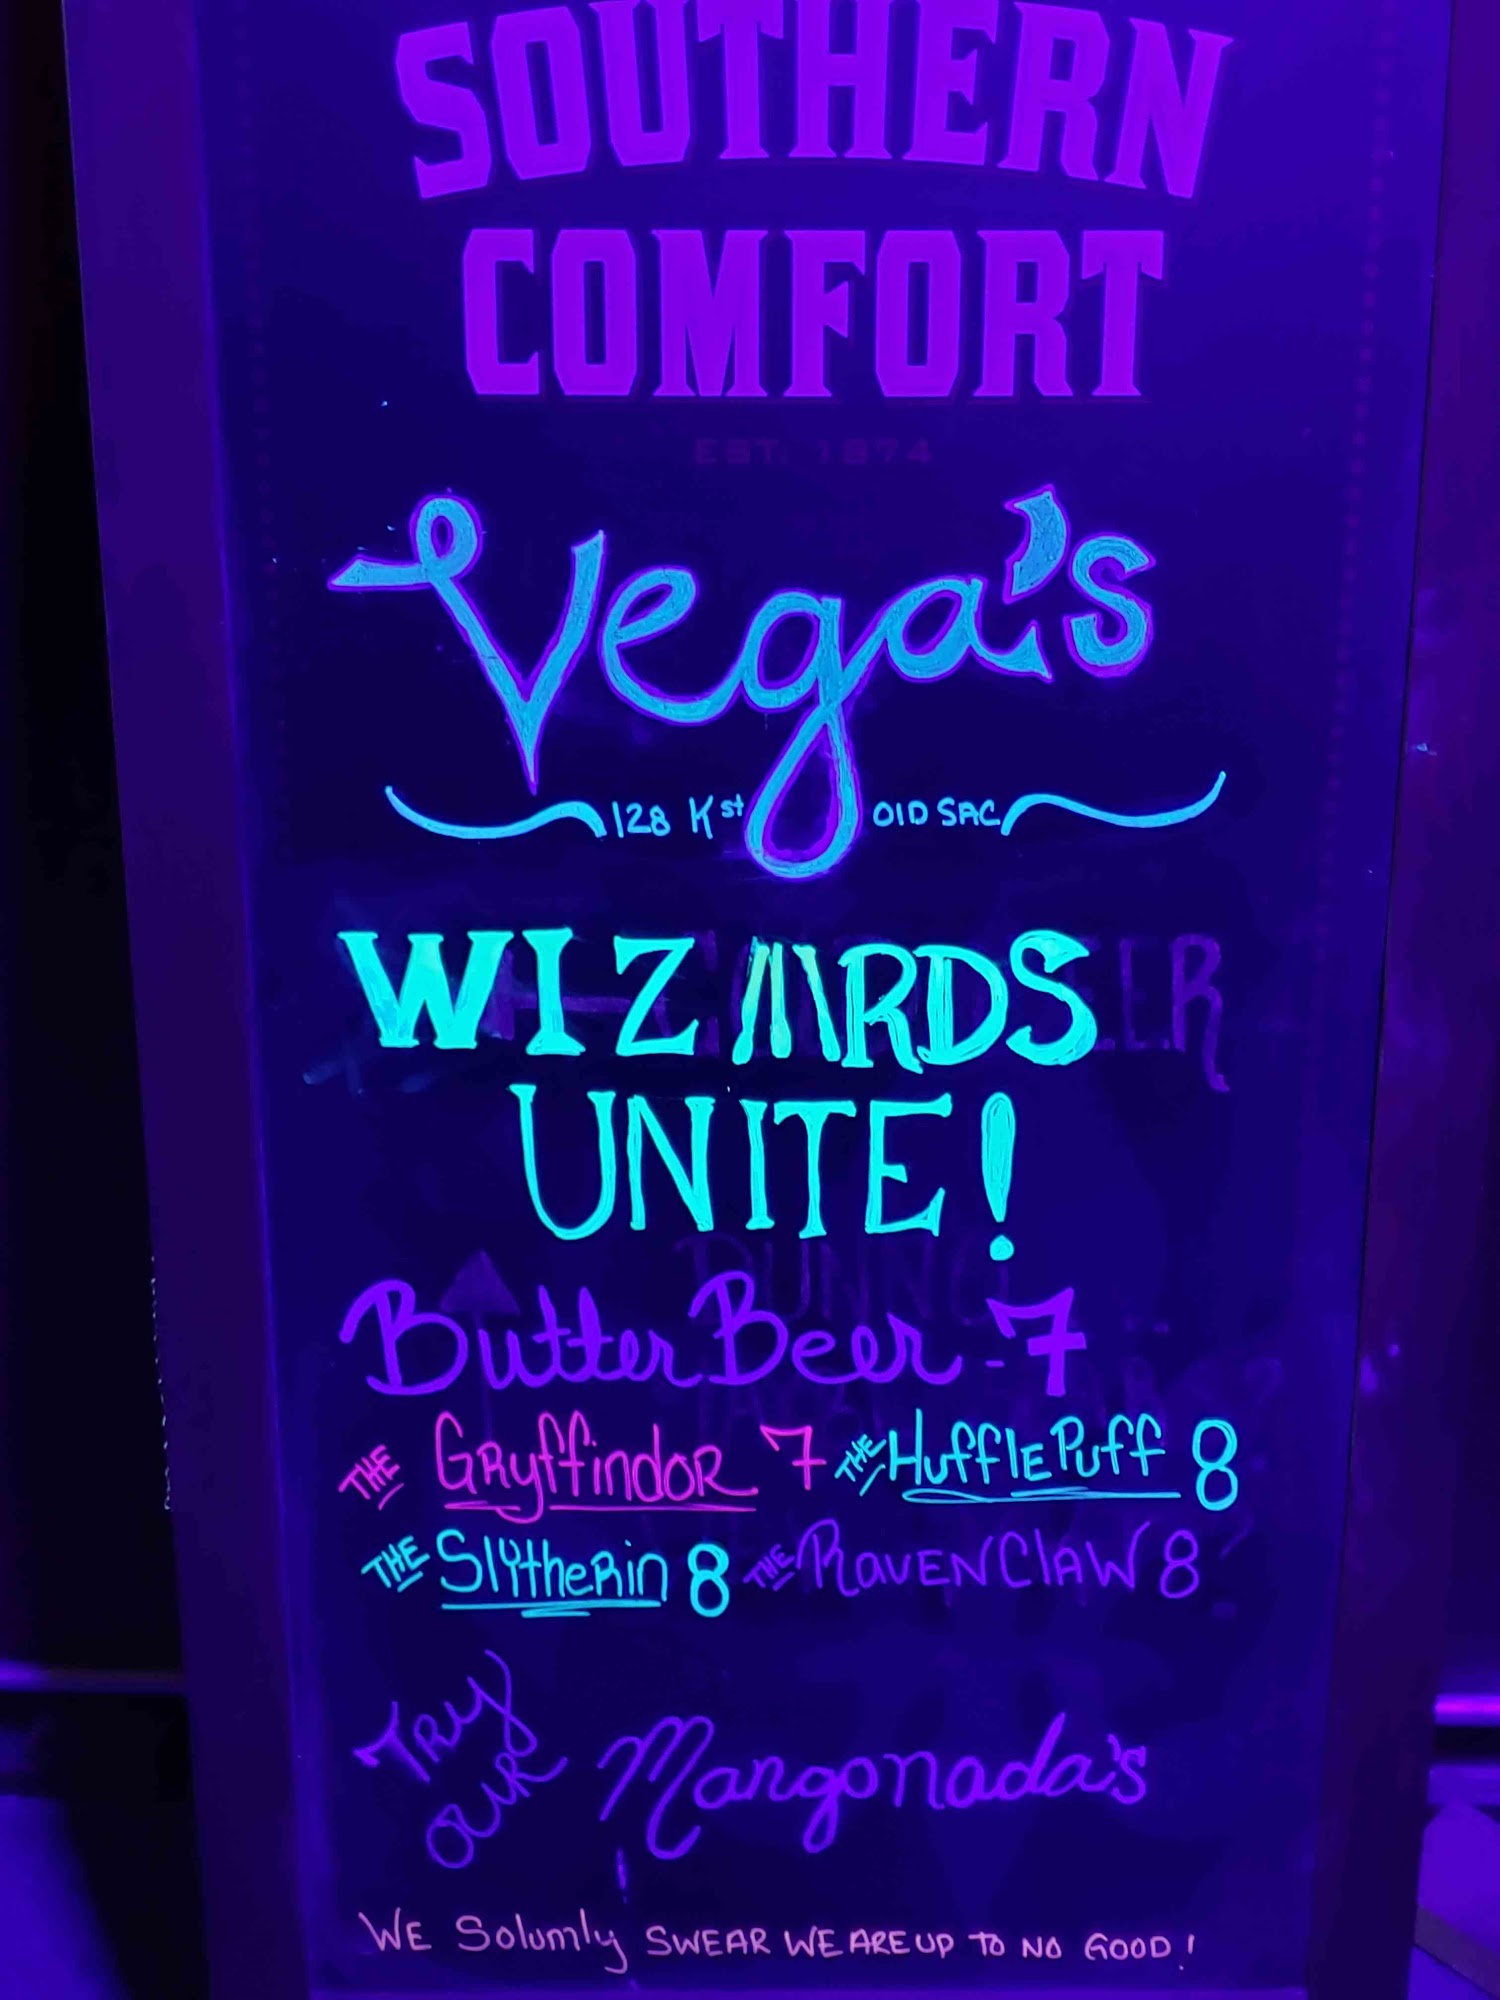 SOUTHERN
COMFORT
EST. 1874
Vega's
128 K st OlD SAC
WIZARDS
UNITE!
Butter Beer - 7
THE GRyffindoR 7 THE HufflEPuff 8
THE SlytheRin 8 THE RavENClAW 8
TRy
OUR Mangonada's
WE Solumly SWEAR WE ARE UP TO NO GOOD!